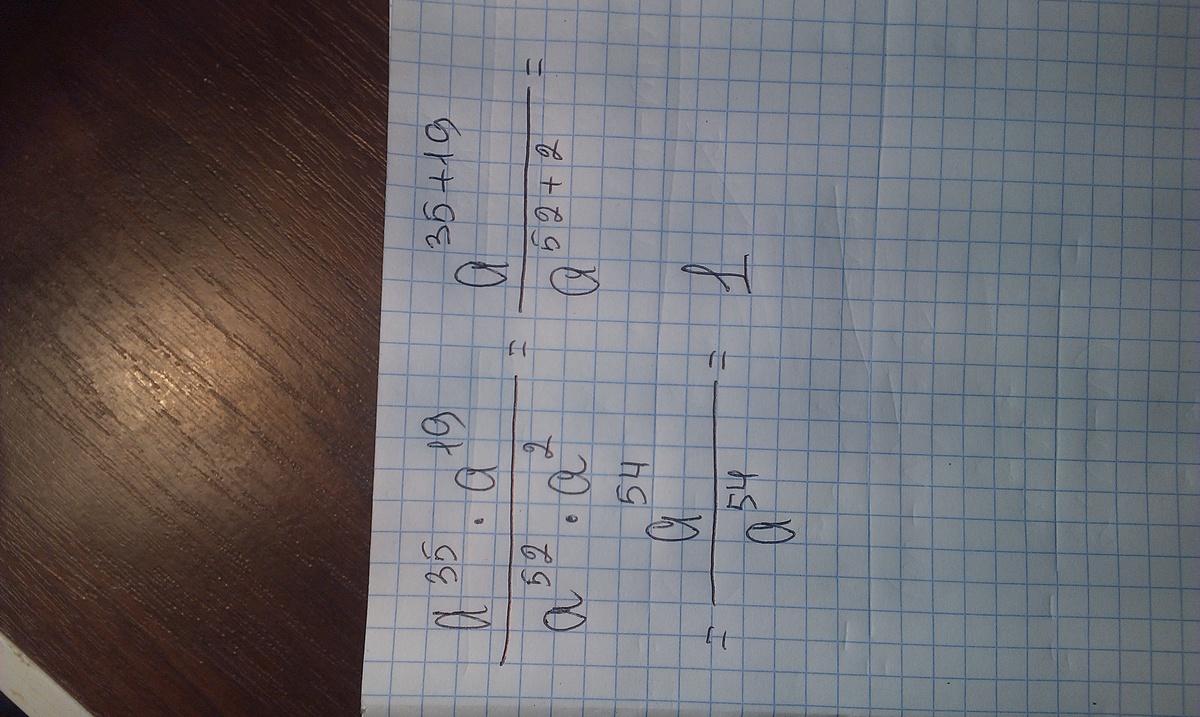 a³⁵ · a¹⁹ / a⁵² · a² = a³⁵⁺¹⁹ / a⁵²⁺² =
= a⁵⁴ / a⁵⁴ = 1